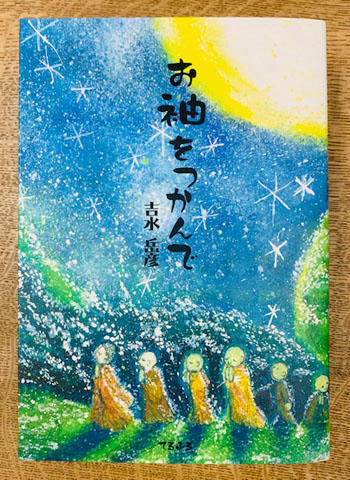 お袖をつかんで
吉水 岳彦
てるはる